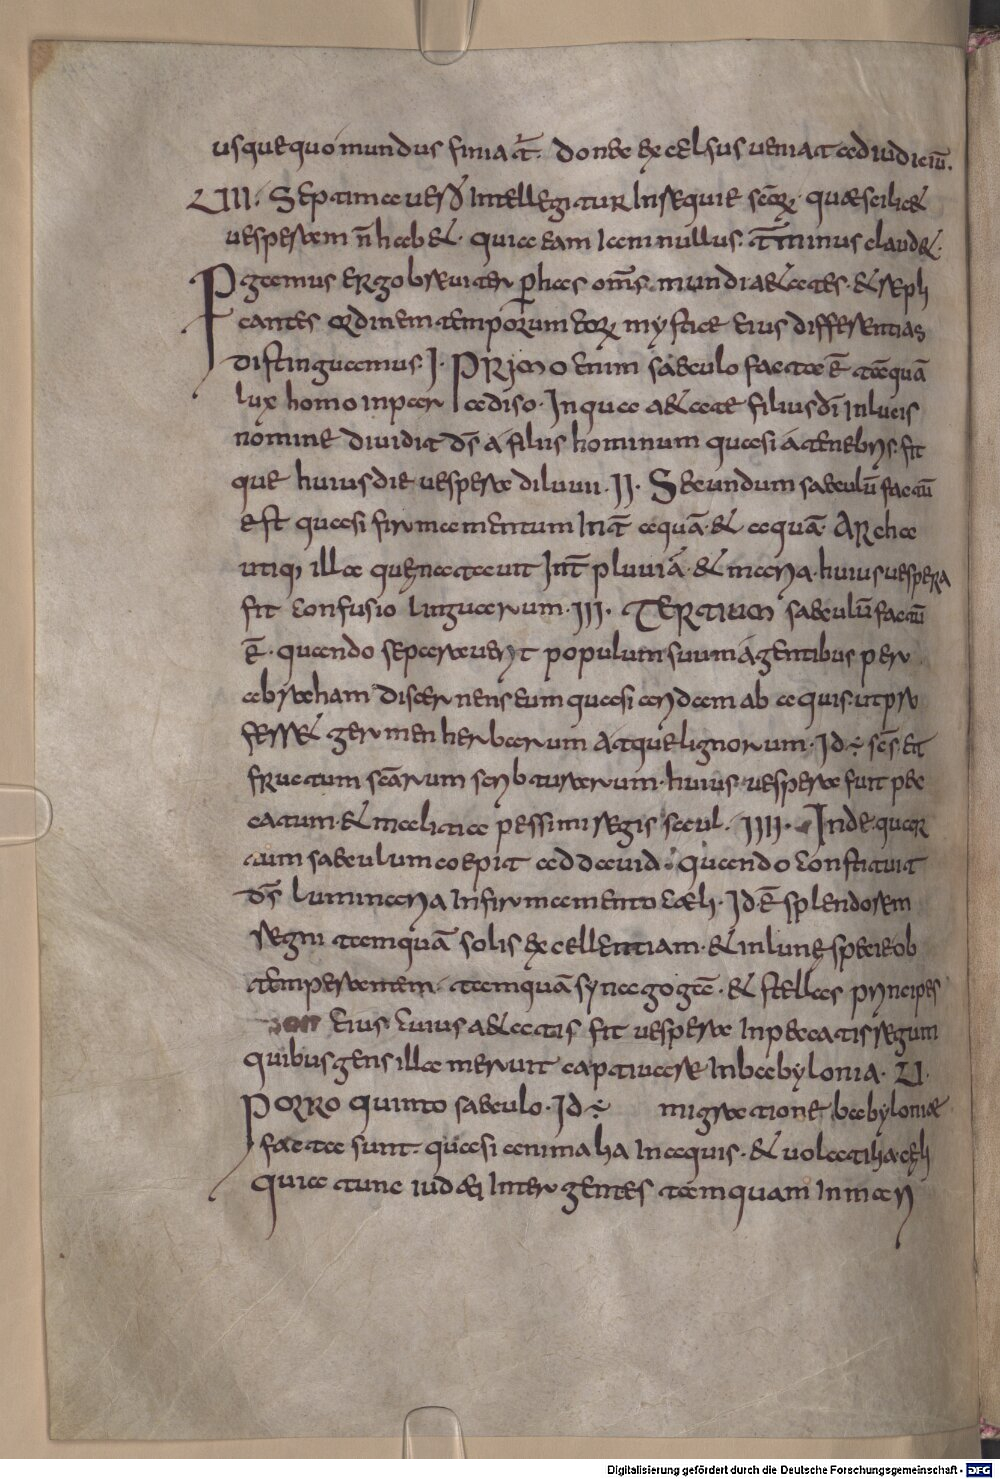 usquequo mundus finiat̄. Donec excelsus ueniat ad iudiciū.
VII. Septima uerō intellegitur in requie scōrꝝ. quae scilic&
uesperam n̄ hab&. quia eam iam nullus t̄minus claud&.
Pgamus ergo breuiter ꝑ has om̄s mundi a&ates. & reph
cantes ordinem temporum eorꝝ mystice eius differentias
distinguamus. I. Primo enim saeculo facta ē tāquā
lux homo in paradiso. In qua a&ate filius dī in lucis
nomine diuidit dš a filiis hominum quasi a tenebris. fit
que huius die uespera diluuii. II. Secundum saeculū factū
est quasi firmamentum int̄ aquā & aquā. Archa
utiqꝫ illa quę natauit int̄ pluuiā & maria. huius uespera
fit confusio linguarum. III. Tertium saeculū factū
ē. quando separauerit populum suum a gentibus per
abraham discernens eum quasi aridam ab aquis. ut pro
ferr& germen herbarum atque lignorum. Id ÷ scōs et
fructum scārum scribturarum. huius uespera fuit pec
catum & malitia pessimi regis saul. IIII. Inde quar
tum saeculum coepit a dauid. Quando constituit
dš luminaria in firmamento cæli. Id ē splendorem
regni tamquā solis excellentiam. & in lunę specie ob
temperantem tamquā synagogā. & stellas principes
eius. cuius a&atis fit uespera in peccatis regum
quibus gens illa meruit captiuare in babylonia. V.
Porro quinto saeculo. Id ÷ migratione babyloniae
facta sunt quasi animalia in aquis. & uolatilia cæli
quia tunc iudæi inter gentes tamquam in mari
Digitalisierung gefördert durch die Deutsche Forschungsgemeinschaft - DFG